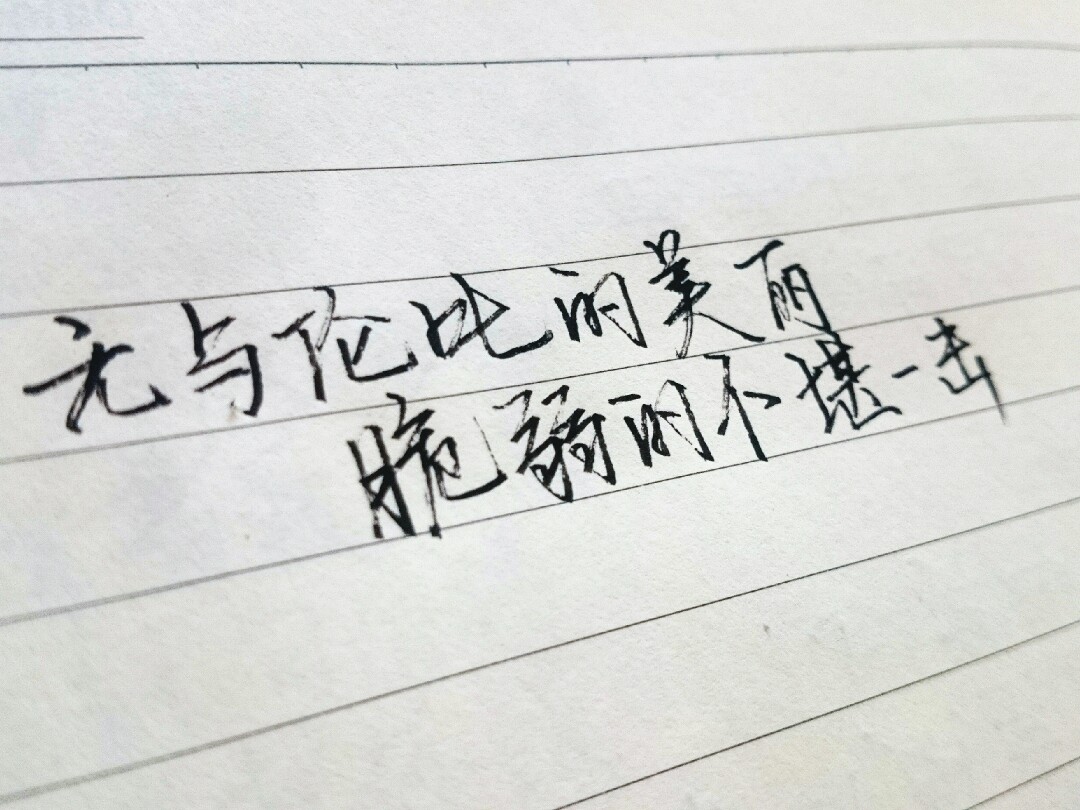 无与伦比的美丽
脆弱的不堪一击